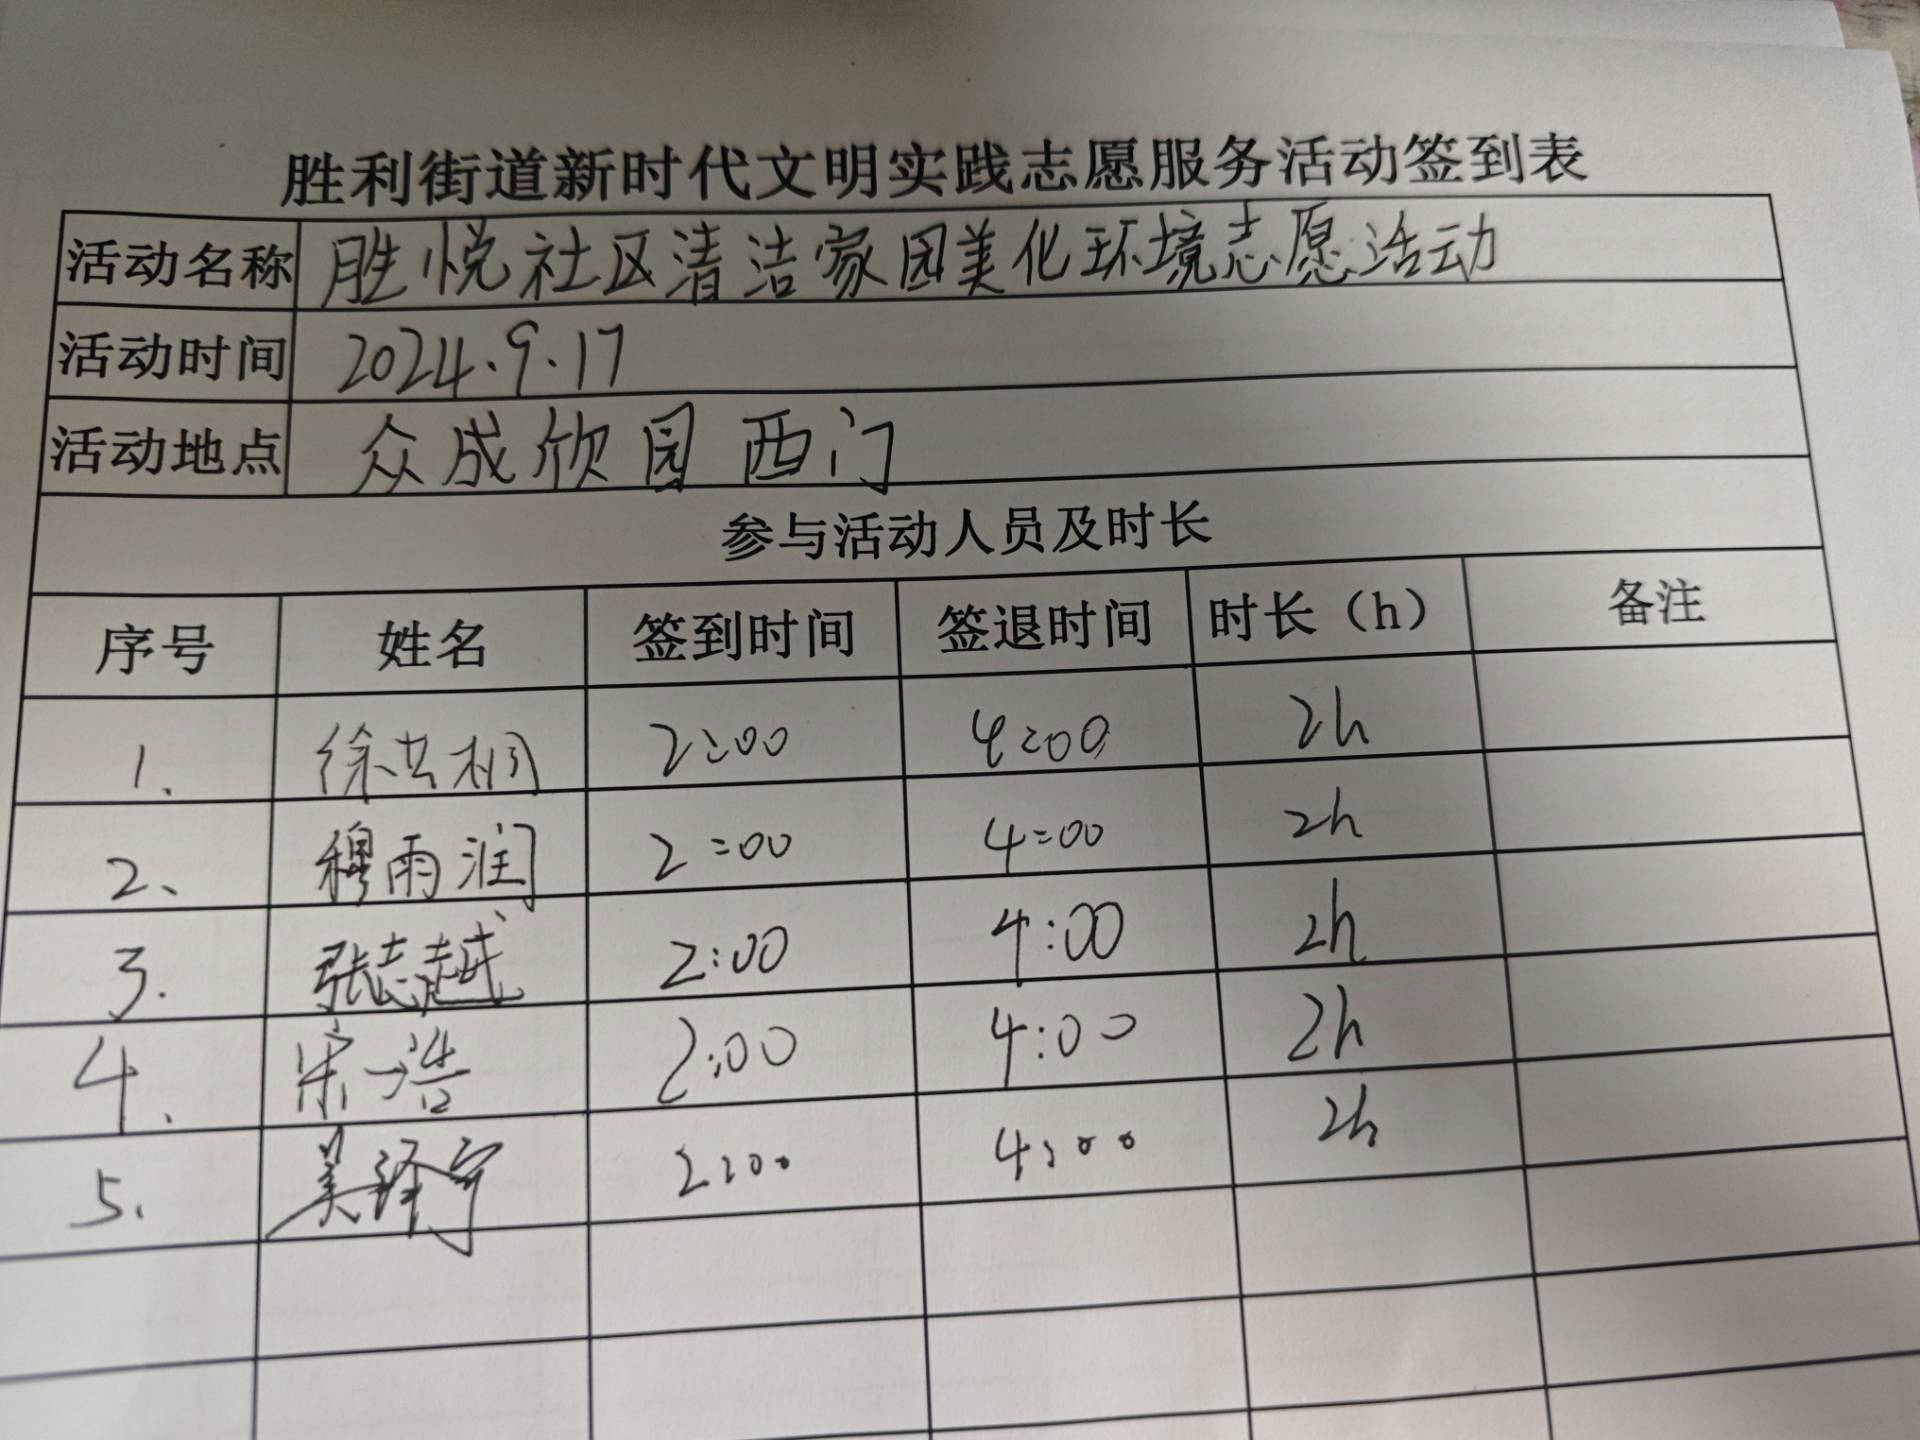 胜利街道新时代文明实践志愿服务活动签到表
活动名称 胜悦社区清洁家园美化环境志愿活动
活动时间 2024.9.17
活动地点 众成欣园 西门
参与活动人员及时长
序号 姓名 签到时间 签退时间 时长（h） 备注
1、 徐 2:00 4:00 2h
2、 穆雨润 2:00 4:00 2h
3. 张志越 2:00 4:00 2h
4. 宋一浩 2:00 4:00 2h
5. 吴泽宇 2:00 4:00 2h